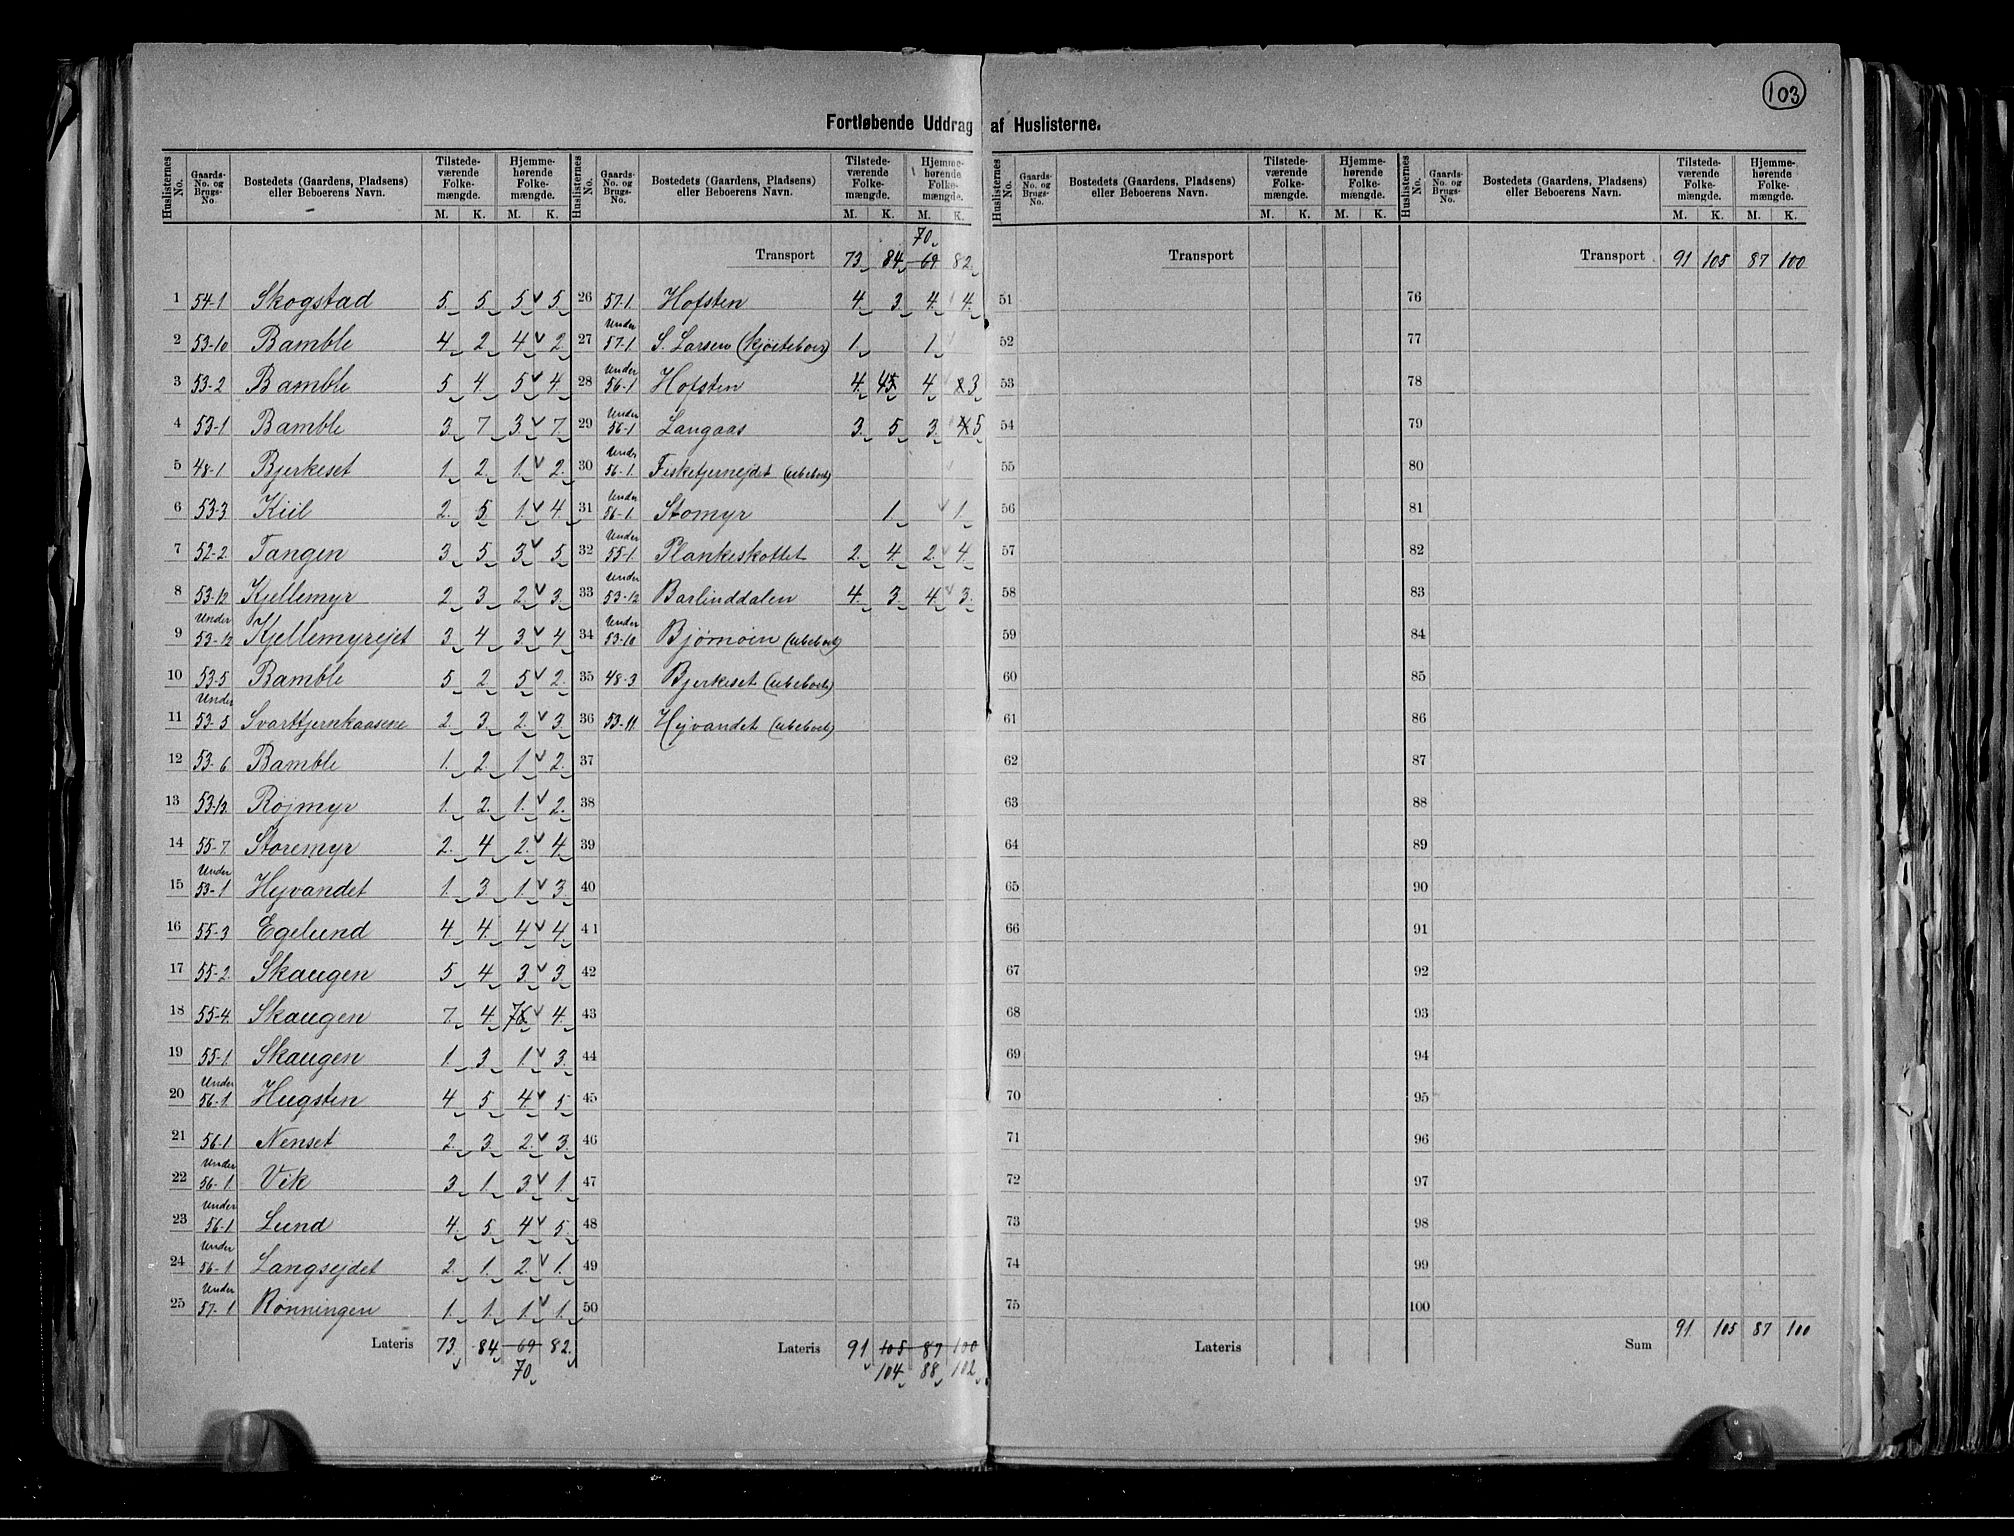 103
Fortløbende Uddrag af Huslisterne.
Huslisternes No. Gaards-No. og Brugs-No. Bostedets (Gaardens, Pladsens) eller Beboerens Navn. Tilstedeværende Folkemængde. M. K. Hjemmehørende Folkemængde. M. K.
1 54-1 Skogstad 5. 5. 5 5.
2 53-10 Bamble 4. 2. 4 2.
3 53-2 Bamble 5 4. 5 4.
4 53-1 Bamble 3. 7. 3. 7.
5 48-1 Bjerkeset 1. 2. 1. 2.
6 53-3 Kiil 2. 5. 1. 4.
7 52-2. Tangen 3. 5. 3 5.
8 53-12 Kjellemyr 2. 3. 2. 3.
9 Under 53-12 Kjellemyrejet 3. 4. 3. 4.
10 53-5 Bamble 5. 2. 5 2.
11 Under 53-5 Svarttjernkaasene 2. 3. 2. 3.
12 53-6 Bamble 1. 2. 1 2.
13 53-13. Röjmyr 1. 2. 1. 2.
14 55-7. Storemyr 2. 4 2. 4.
15 Under 53-1 Hejvandet 1. 3. 1. 3.
16 55-3 Egelund 4. 4. 4 4.
17 55-2. Skaugen 5 4. 3 3.
18 55-4. Skaugen 7. 4. 4.
19 55-1. Skaugen 1. 3. 1 3.
20 Under 56-1. Hugsten 4. 5. 4 5.
21 56-1 Nenset 2. 3. 2. 3.
22 Under 56-1. Vik 3. 1. 3 1.
23 Under 56-1 Lund 4. 5. 4 5.
24 Under 56-1 Langsejdet 2. 1. 2. 1.
25 Under 57-1 Rönningen 1. 1. 1. 1.
Lateris 73. 84. 69 82.
70.
Huslisternes No. Gaards-No. og Brugs-No. Bostedets (Gaardens, Pladsens) eller Beboerens Navn. Tilstedeværende Folkemængde. M. K. Hjemmehørende Folkemængde. M. K.
70.
Transport 73. 84. 69 82.
26 57-1 Hofsten 4. 3. 4. 4.
27 Under 57-1 S. Larsen 1. 1.
28 Under 56-1 Hofsten 4. 4 4. 3.
29 Under 56-1 Langaas 3. 5. 3. 5
30 Under 56-1. Fisketjernejdet (ubeboet)
31 Under 56-1. Stomyr 1. 1.
32 Under 55-1. Plankeskottet 2. 4. 2. 4.
33 Under 53-12 Barlinddalen 4. 3. 4. 3.
34 Under 53-10 Bjørnøen (ubeboet)
35 48-3 Bjerkeset (ubeboet)
36 53-11 Hejvandet (ubeboet)
37
38
39
40
41
42
43
44
45
46
47
48
49
50
Lateris 91. 105 87 100
104. 88. 102.
Huslisternes No. Gaards-No. og Brugs-No. Bostedets (Gaardens, Pladsens) eller Beboerens Navn. Tilstedeværende Folkemængde. M. K. Hjemmehørende Folkemængde. M. K.
Transport
51
52
53
54
55
56
57
58
59
60
61
62
63
64
65
66
67
68
69
70
71
72
73
74
75
Lateris
Huslisternes No. Gaards-No. og Brugs-No. Bostedets (Gaardens, Pladsens) eller Beboerens Navn. Tilstedeværende Folkemængde. M. K. Hjemmehørende Folkemængde. M. K.
Transport 91 105 87 100
76
77
78
79
80
81
82
83
84
85
86
87
88
89
90
91
92
93
94
95
96
97
98
99
100
Sum 91. 105 87 100